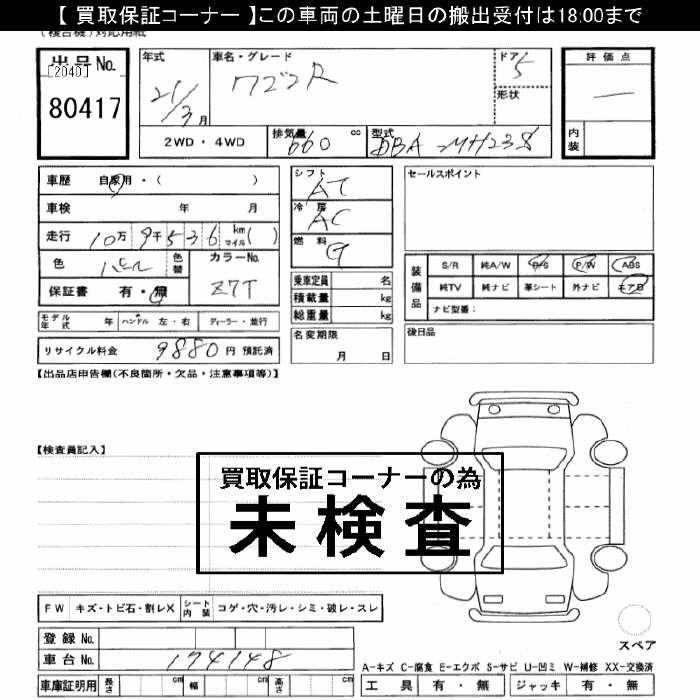 【 買取保証コーナー 】この車両の土曜日の搬出受付は18:00まで
(複合機)対応用紙
出品 No.
[2040]
80417
年式
21/3 月
車名・グレード
ワゴンR
ドア
5
形状
評価点
内装
2WD・4WD
排気量
660 cc
型式
DBA-MH23S
車歴 自家用・( )
車検 年 月
走行 10万9千536 km マイル( )
色 パール
色替
カラーNo.
Z7T
保証書 有・無
シフト
AT
冷房
AC
燃料
G
乗車定員 名
積載量 kg
総重量 kg
セールスポイント
装備品
S/R 純A/W P/S P/W ABS
純TV 純ナビ 革シート 外ナビ エアB
ナビ型番:
モデル年式 年 ハンドル 左・右 ディーラー・並行
リサイクル料金 9880 円 預託済
名変期限
月 日
後日品
【出品店申告欄(不良箇所・欠品・注意事項等)】
【検査員記入】
買取保証コーナーの為
未検査
FW キズ・トビ石・割レX シート内装 コゲ・穴・汚レ・シミ・破レ・スレ
登録 No.
車台 No. 174148
車庫証明用 長さ cm 幅 cm 高さ cm
スペア
A-キズ C-腐食 E-エクボ S-サビ U-凹ミ W-補修 XX-交換済
工具 有・無 ジャッキ 有・無